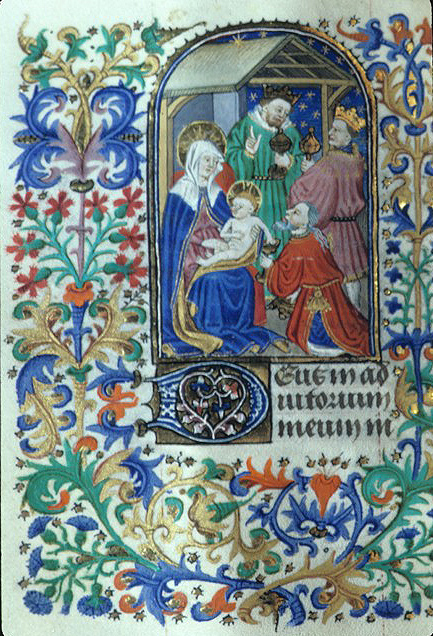 DEus in ad
iutorium
meum in